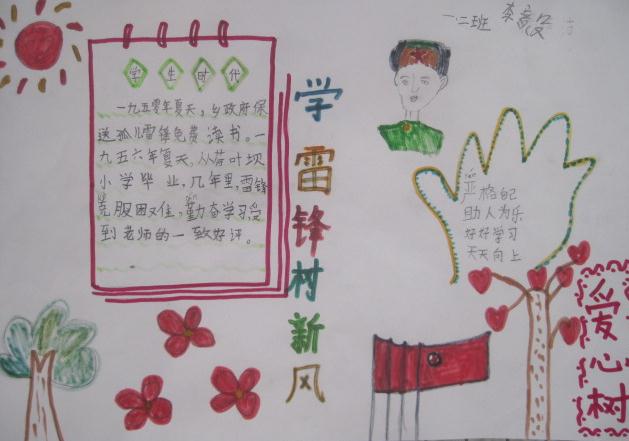 一二班
学生时代
一九五零年夏天，乡政府保
送孤儿雷锋免费读书。一
九五六年夏天，从荷叶坝
小学毕业，几年里，雷锋
克服困难，勤奋学习受
到老师的一致好评。
学雷锋树新风
严格自己
助人为乐
好好学习
天天向上
爱心树